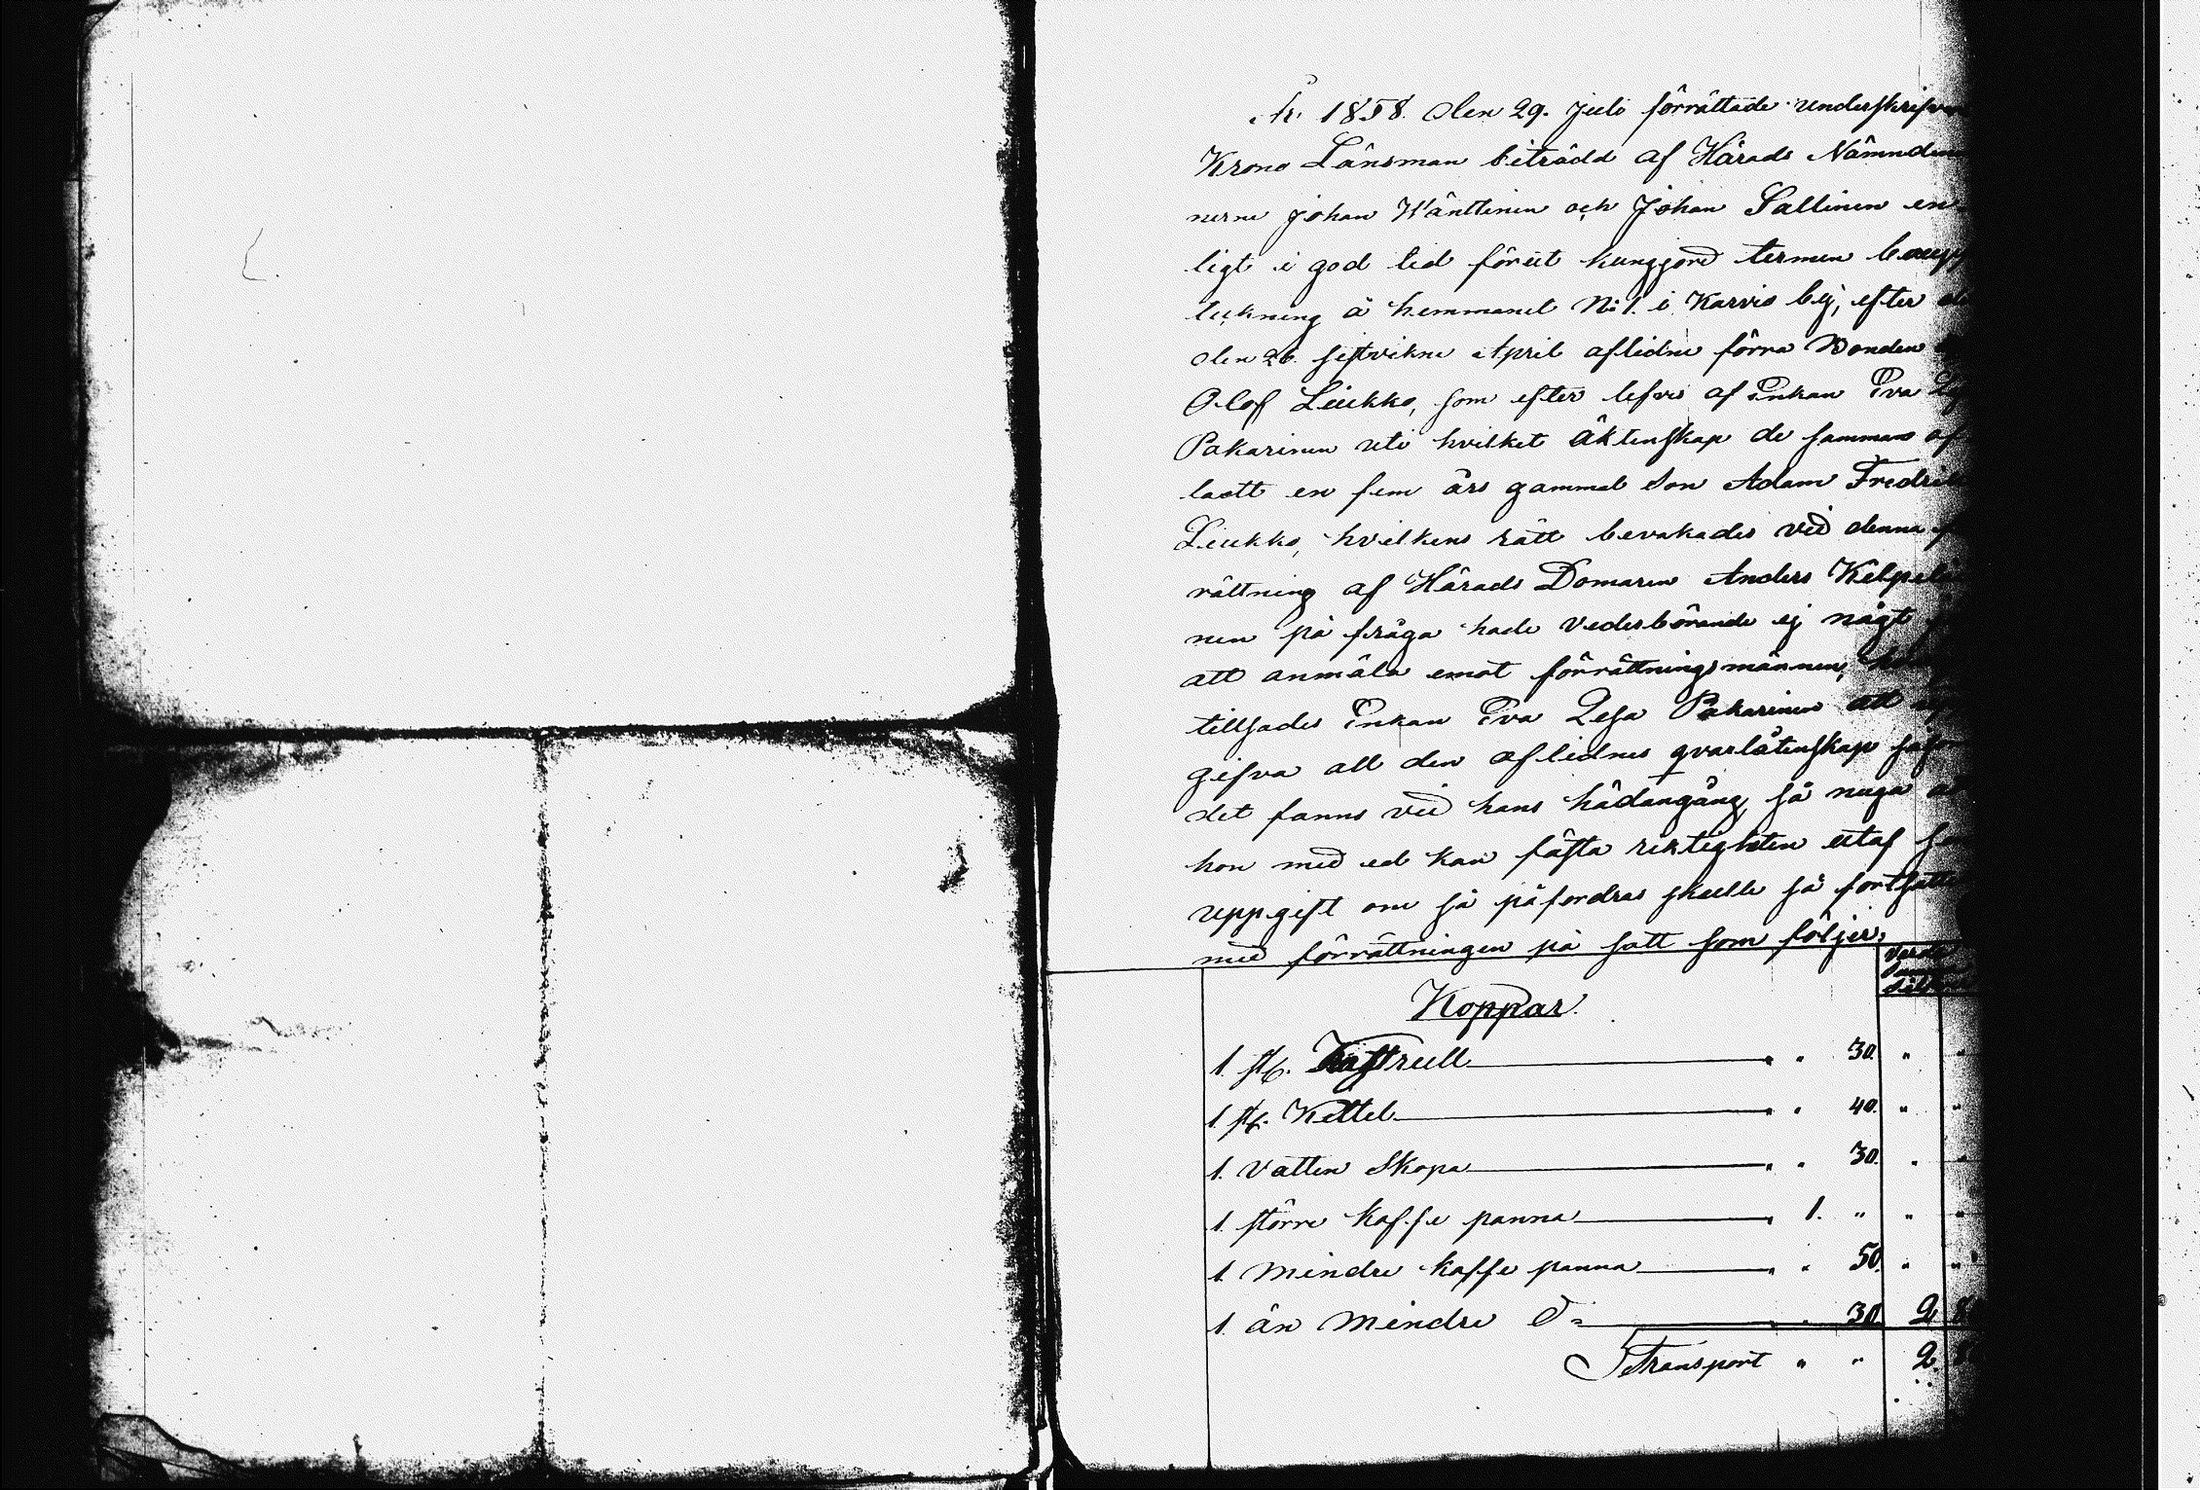 År 1858. den 29. Juli förrättade underskrifven
Krono Länsman biträdd af Härads Nämndem
nerne Johan Wänttinen och Johan Sallinen en
ligt i god tid förut kungjord termin bouupp
teckning å hemmanet No 1. i Karvio by, efter
den 26. sistvikne April aflidne förra Bonden
Olof Liukko, som efter lefver af Enkan Eva
Pakarinen uti hvilket äktenskap de sammans af
lastt en fem års gammal Son Adam Fredrik
Liukko, hvilkens rätt bevakades vid denna
rättning af Härads Domaren Anders Kilpeläi
nen på fråga hade Vederbörande ej någt
att anmäla emot förrättningsmännen,
tillsades Enkan Eva Lesa Pakarinen att
gifva all den aflidnes qvarlåtenskap såsom
det fanns vid hans hädangång, så nuga
hon med ed kan fästa riktigheten utaf
uppgift om så påfordras skulle så fortsatte
med förrättningen på satt som följer;
Koppar.
1. st. Kastrull " " 30. " "
1. st. Kettel " " 40. " "
1. Vatten Skopa " " 30. " "
1. större kaffe panna " 1. " " "
1. mindre kaffe panna " " 50. " "
1. än mindre d:o " " 30. 2. 80
Transport " " 2. 80